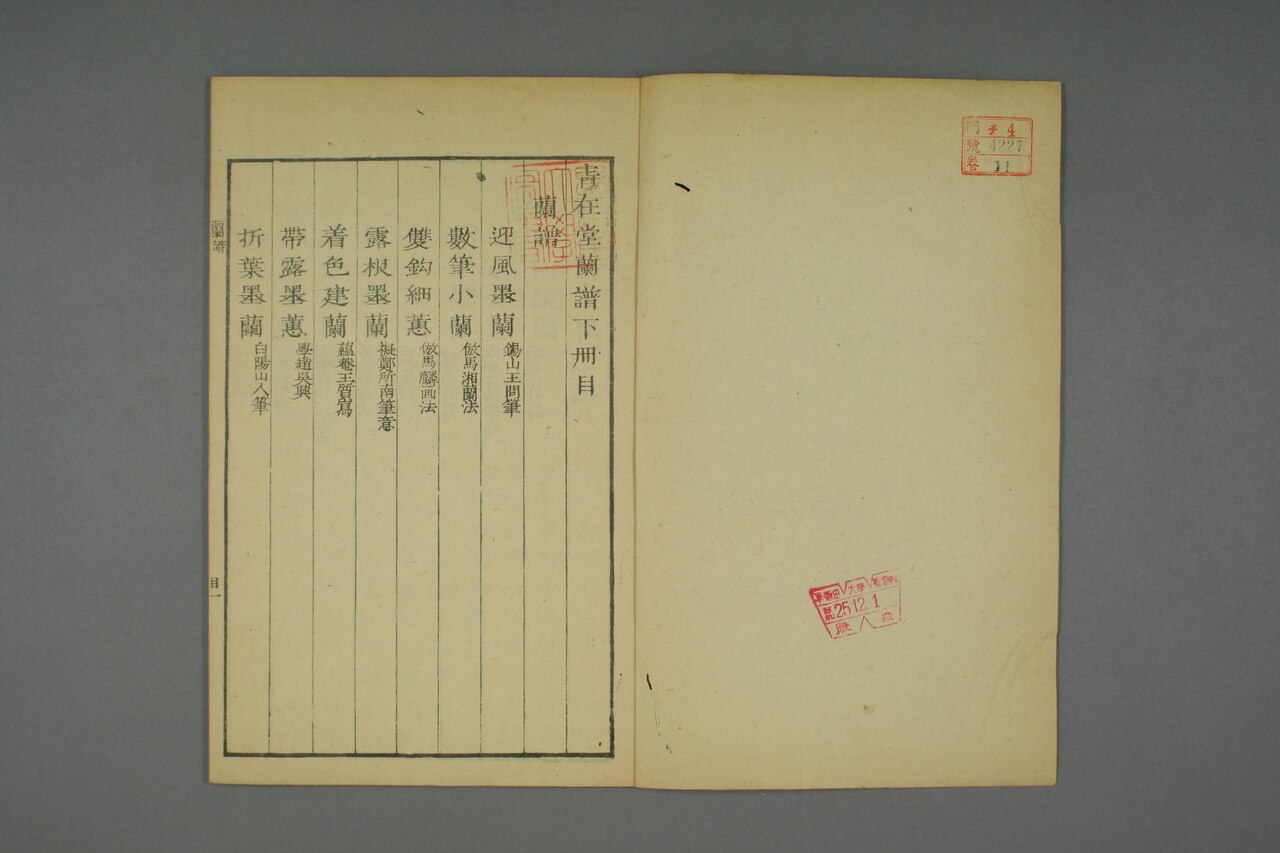 門 チ 4
號 4227
卷 11
青在堂蘭譜下冊目
蘭譜
迎風墨蘭 錫山王問筆
數筆小蘭 倣馬湘蘭法
雙鈎細蕙 倣馬麟画法
露根墨蘭 擬鄭所南筆意
着色建蘭 蘊菴王質寫
帶露墨蕙 學趙吳興
折葉墨蘭 白陽山人筆
蘭譜
目一
大學
25.12.1